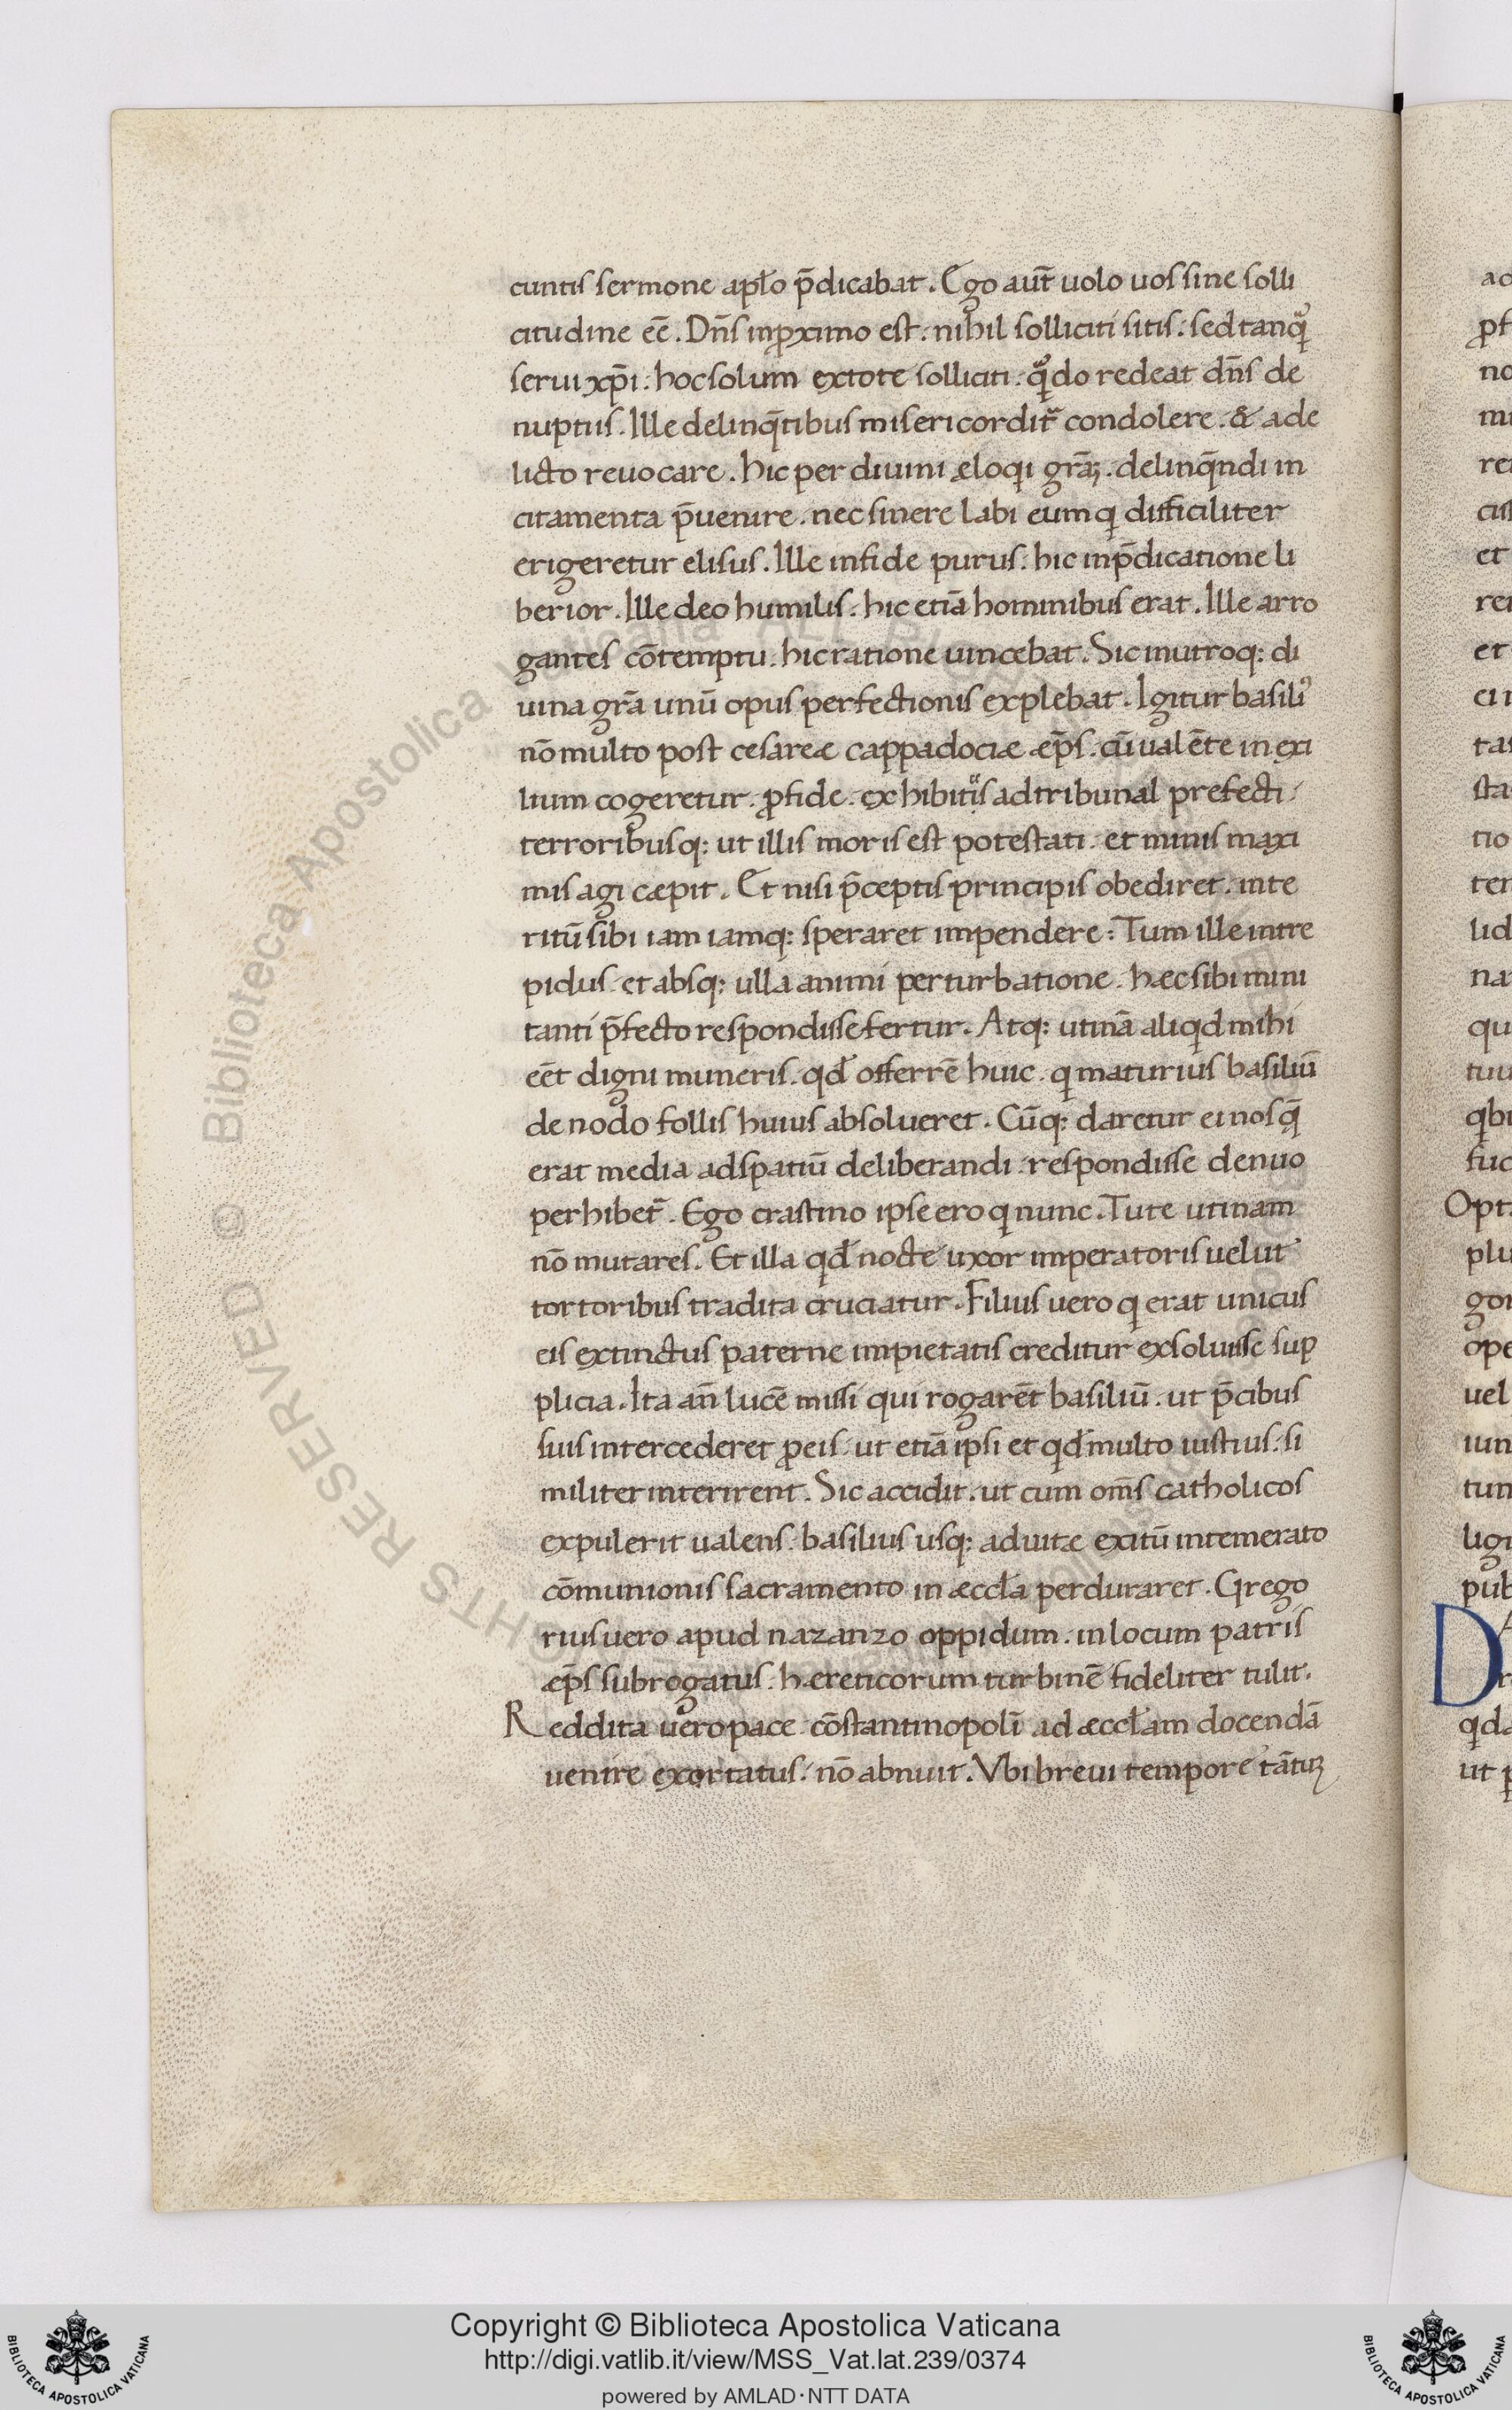 cuntis sermone apło p̄dicabat. Ego aut̄ uolo uos sine solli
citudine eē. Dn̄s inꝓximo est. nihil solliciti sitis. sed tanqͣ̄
serui xp̄i. hoc solum extote solliciti. qͣ̄do redeat dn̄s de
nuptiis. Ille delinq̄tibus misericordit̄ condolere. & a de
licto reuocare. hic per diuini æloqi grāꝫ. delinq̄ndi in
citamenta p̄uenire. nec sinere labi eum qi difficiliter
erigeretur elisus. Ille in fide purus. hic in p̄dicatione li
berior. Ille deo humilis. hic etiā hominibus erat. Ille arro
gantes cōtemptu. hic ratione uincebat. Sic inutroq: di
uina gr̄a unū opus perfectionis explebat. Igitur basiliꝰ
nō multo post cesareæ cappadociæ æp̄s. cū ualēte in exi
lium cogeretur. ꝓfide. exhibitus ad tribunal prefecti
terroribusq: ut illis moris est potestati. et minis maxi
mis agi cæpit. Et nisi p̄ceptis principis obediret. inte
ritū sibi iam iamq: speraret inpendere: Tum ille intre
pidus. et absq: ulla animi perturbatione. hæc sibi mini
tanti p̄fecto respondisse fertur. Atq: utinā aliqid mihi
eēt digni muneris. qđ offerrē huic. qi maturius basiliū
de nodo follis huius absolueret. Cūq: daretur ei nos q̄
erat media ad spatiū deliberandi. respondisse denuo
perhibet̄. Ego crastino ipse ero qi nunc. Tu te utinam
nō mutares. Et illa qđ nocte uxor imperatoris uelut
tortoribus tradita cruciatur. Filius uero qi erat unicus
eis extinctus paterne impietatis creditur exsoluisse sup
plicia. Ita an̄ lucē missi qui rogarēt basiliū. ut p̄cibus
suis intercederet ꝓ eis. ut etiā ipsi et qđ multo iustius. si
militer interirent. Sic accidit. ut cum om̄s catholicos
expulerit ualens. basilius usq: ad uitæ exitū intemerato
cōmunionis sacramento in æccła perduraret. Grego
rius uero apud nazanzo oppidum. in locum patris
æp̄s subrogatus. hæreticorum turbinē fideliter tulit.
Reddita uero pace. cōstantinopoli ad æccłam docendā
uenire exortatus. nō abnuit. Vbi breui tempore tātuꝫ
Opt
D
Copyright © Biblioteca Apostolica Vaticana
http://digi.vatlib.it/view/MSS_Vat.lat.239/0374
powered by AMLAD·NTT DATA
BIBLIOTECA APOSTOLICA VATICANA
BIBLIOTECA APOSTOLICA VATICANA